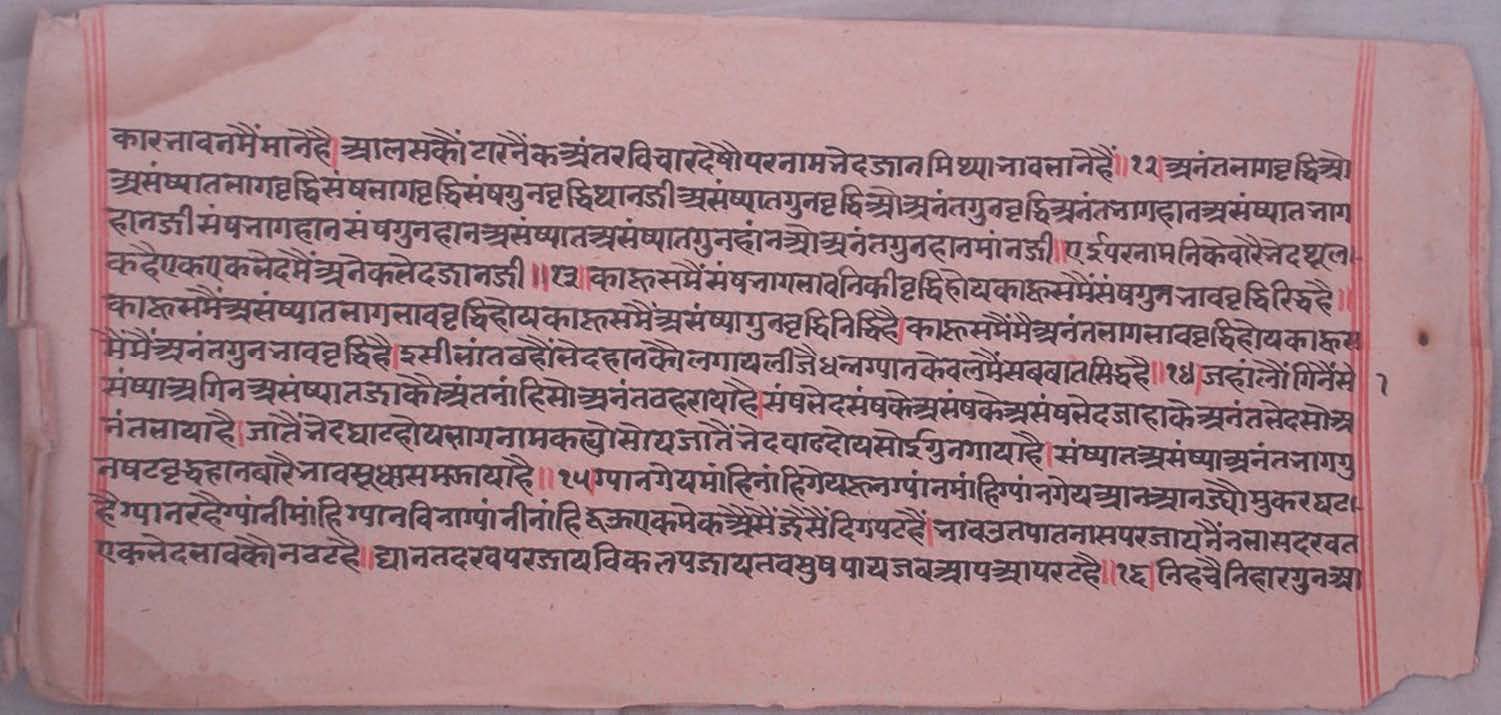 कारनावनमैंमानैहै।आलसकौंटारनैंकअंतरविचारदेषौपरनामभेदजानमिथ्याभावभानेहैं॥१२।अनंतभागवृद्धिऔ
असंष्यातभागवृद्धिसंषभागवृद्धिसंषगुनवृद्धिथानजीअसंष्यातगुनवृद्धिऔअनंतगुनवृद्धिअनंतभागहानअसंष्यातभाग
हानजीसंषभागहानसंषगुनहानअसंष्यातअसंष्यातगुनहांनऔअनंतगुनहानमांनजी॥एईपरनामनिकेबारैभेदथूल
कहैएकएकभेदमैंअनेकभेदजानजी॥१३॥काहूसमैंसंषभागभावनिकीवृद्धिहोयकाहूसमैंसंषगुनभाववृद्धिरिद्धहै॥
काहूसमैंअसंष्यातभागभाववृद्धिहोयकाहूसमैंअसंष्यागुनवृद्धिनिद्धिहै।काहूसमैंमैअनंतभागभाववृद्धिहोयकाहूस
मैंमैंअनंतगुनभाववृद्धिहै।इसीभांतबहौंभेदहानकौलगायलीजैधन्नग्यानकेवलमैंसबबातसिद्धहै॥१४।जहांलौंगिनैंसे
संष्याअगिनअसंष्यातजाकौअंतनांहिसोअनंतवहरायाहै।संषभेदसंषकेअसंषकेअसंषभेदजाहाकेअनंतभेदसोअ
नंतभायाहै।जातैंभेदघाटहोयभागनामकह्योसोयजातैंभेदवाढहोयसोईगुनगायाहै।संष्यातअसंष्याअनंतभागगु
नषटवृद्धहानबारैभावसूधासमजायाहै॥१५।ग्यानगेयमांहिनांहिगेयहूनग्यांनमांहिग्यांनगेयआनआनज्यौमुकरघटा
हैग्यानरहैग्यांनीमांहिग्यानविनाग्यांनीनांहिदूऊएकमेकअैसैंजैसैंदिगपटहैं।भावउतपातनासपरजायनैंनभासदरवत
एकभेदभावकौनवटहै॥द्यानतदरबपरजायविकलपजायतवसुषपायजबआपआपरटहै॥१६।निहचैनिहारगुनआ
१